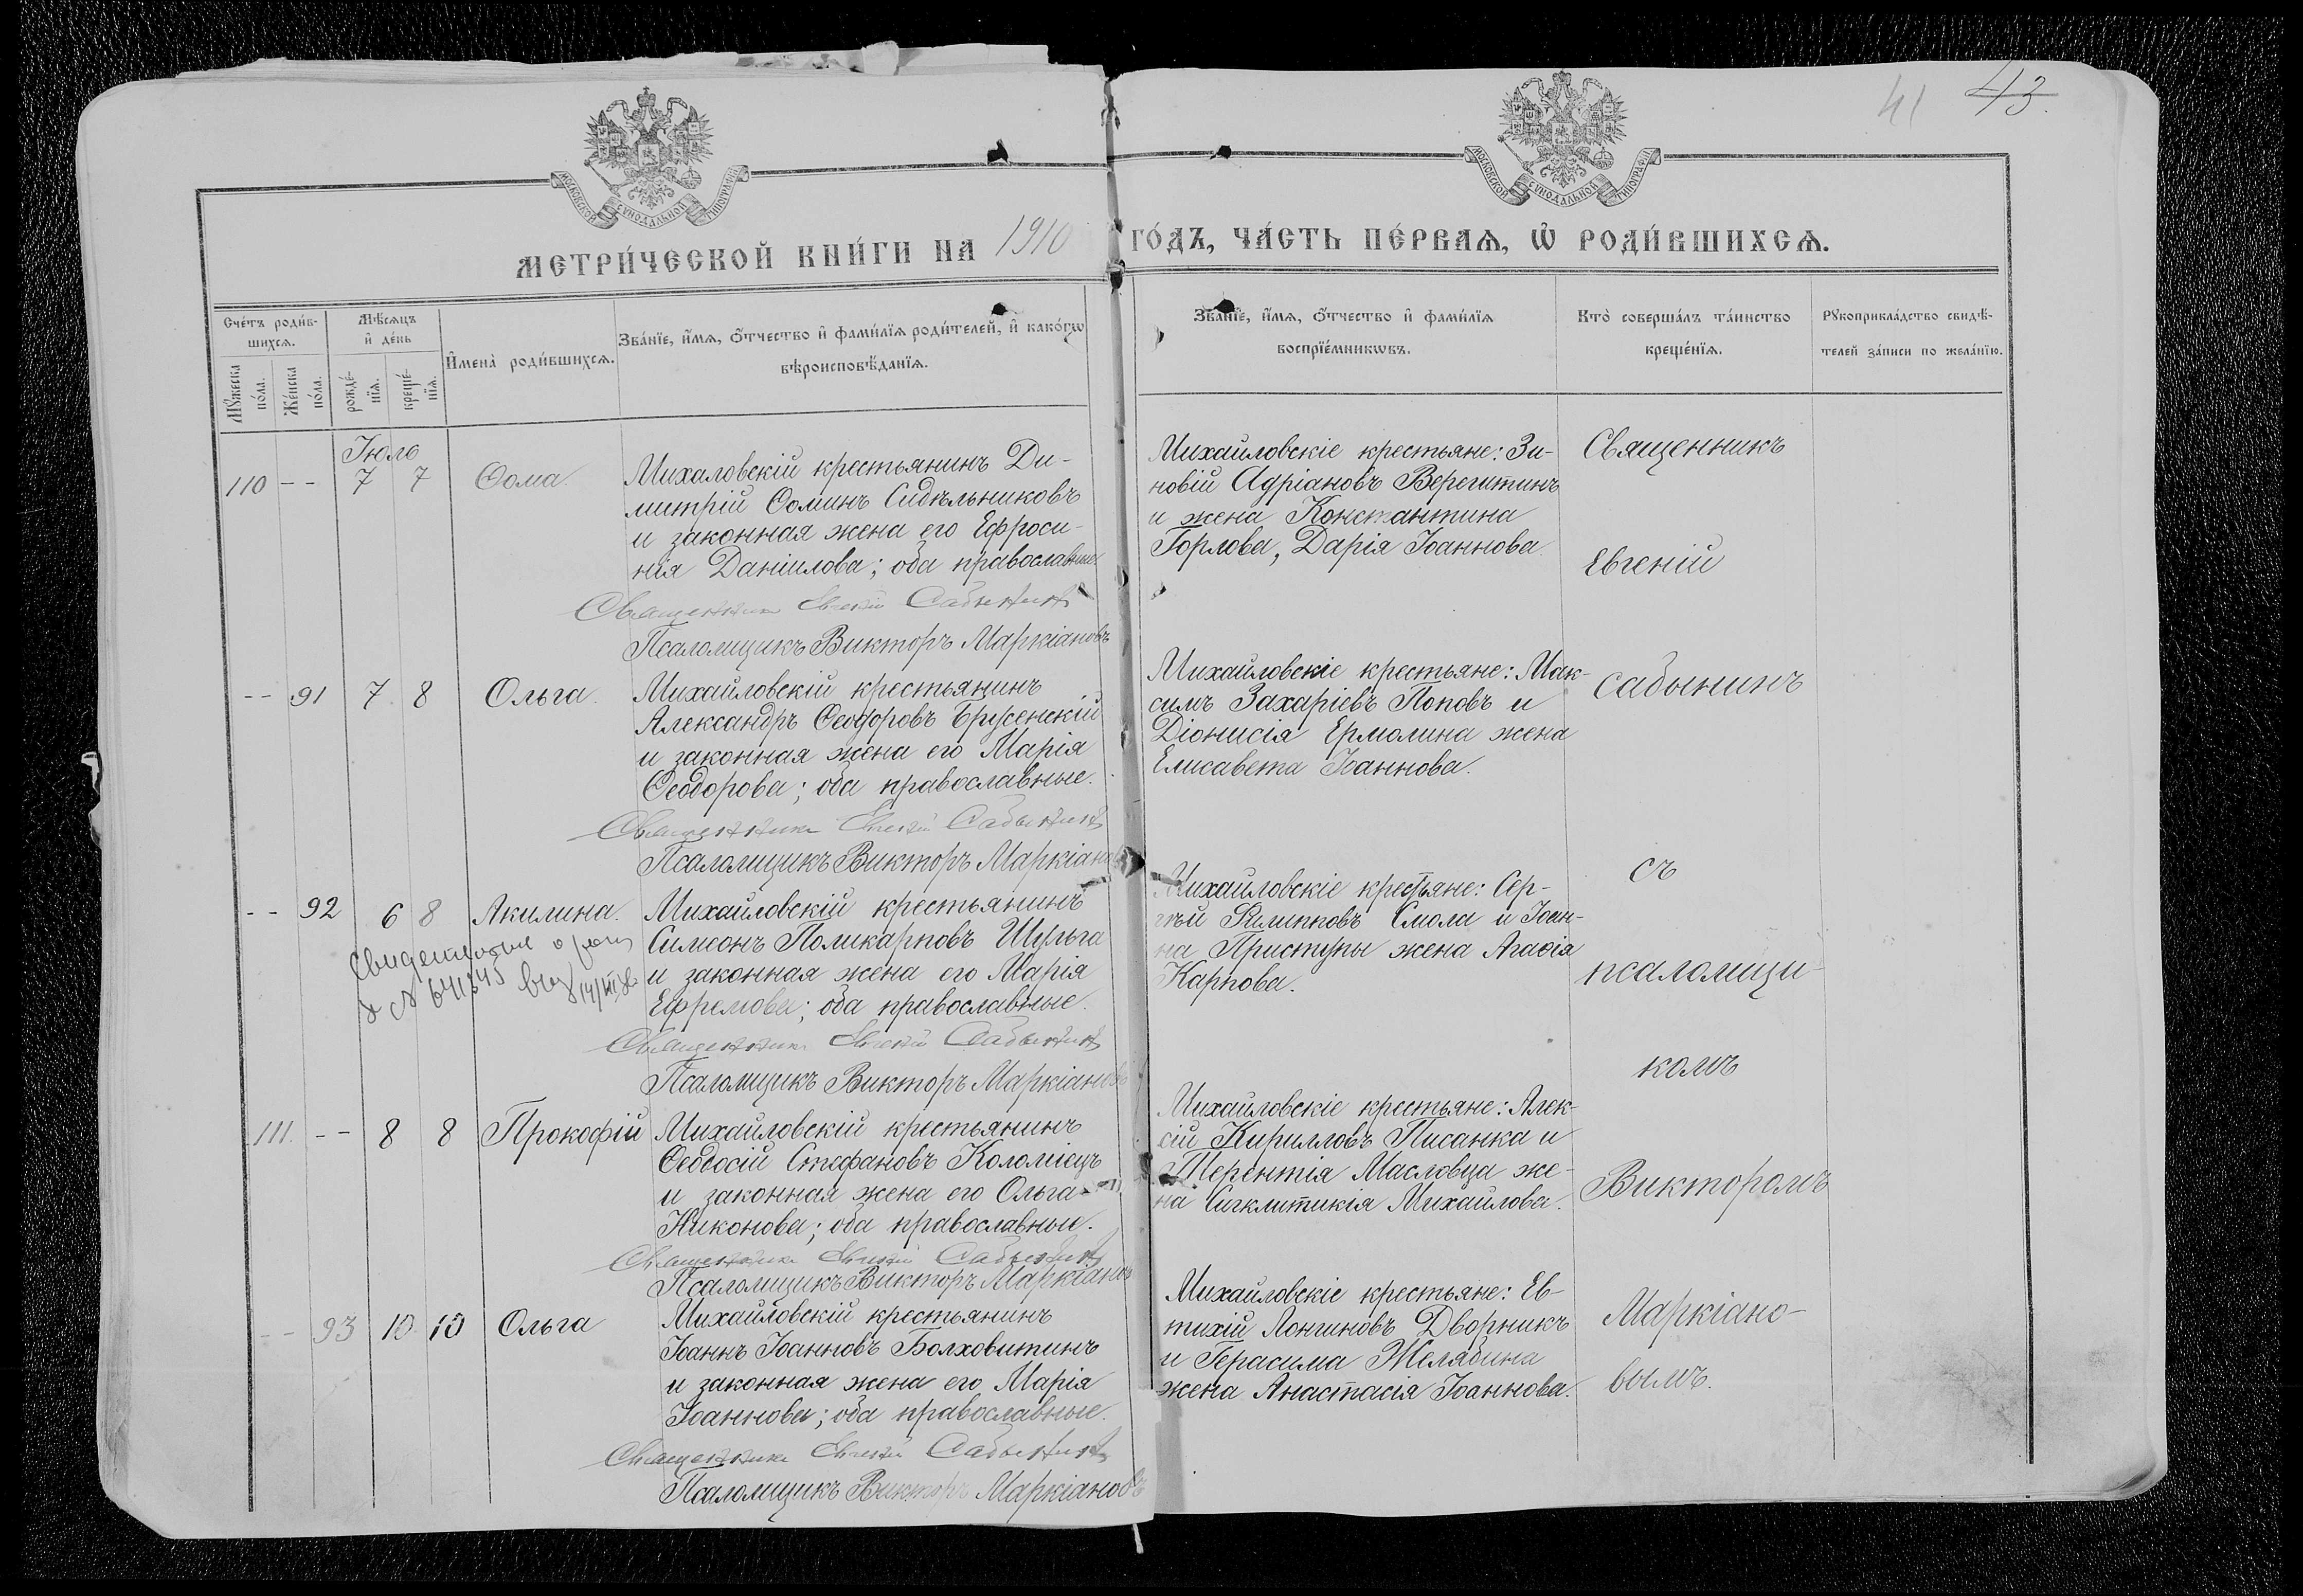 41 43.
МОСКОВСКОЙ СѴНОДАЛЬНОЙ ТИПОГРАФІИ
МОСКОВСКОЙ СѴНОДАЛЬНОЙ ТИПОГРАФІИ
МЕТРИ́ЧЕСКОЙ КНИ́ГИ НА 1910 ГО́ДЪ, ЧА́СТЬ ПЕ́РВАѦ, Ѡ҆ РОДИ́ВШИХСѦ.
Сче́тъ роди́в-
шихсѧ.
Мꙋ́жеска по́ла.
Же́нска по́ла.
Мѣ́сѧцъ и҆ де́нь
рожде́-нїѧ.
креще́-нїѧ.
И҆мена̀ роди́вшихсѧ.
Зва́нїе, и҆́мѧ, ѻ҆́тчество и҆ фами́лїѧ роди́телей, и҆ како́гѡ
вѣроисповѣ́данїѧ.
Зва́нїе, и҆́мѧ, ѻ҆́тчество и҆ фами́лїѧ
воспрїе́мникѡвъ.
Кто̀ соверша́лъ та́инство
креще́нїѧ.
Рꙋкоприкла́дство свидѣ́-
телей за́писи по жела́нїю.
Іюль
110 -- 7 7 Ѳома.
Михаловскій крестьянинъ Ди-
митрій Ѳоминъ Сидѣльниковъ
и законная жена его Ефроси-
нія Даніилова; оба православные
Священникъ Евгеній Сабынинъ
Псаломщикъ Викторъ Маркіановъ
Михайловскіе крестьяне: Зи-
новій Адріановъ Веретитинъ
и жена Константина
Горлова, Дарія Іоаннова.
-- 91 7 8 Ольга.
Михайловскій крестьянинъ
Александръ Ѳеодоровъ Бруженскій
и законная жена его Марія
Ѳеодорова; оба православные.
Священникъ Евгеній Сабынинъ
Псаломщикъ Викторъ Маркіанов
Михайловскіе крестьяне: Мак-
симъ Захаріевъ Поповъ и
Діонисія Ермолина жена
Елисавета Іоаннова.
-- 92 6 8 Акилина.
Свидетельство о рожд
№ 641845
Михайловскій крестьянинъ
Симеонъ Поликарповъ Шульга
и законная жена его Марія
Ефремова; оба православные.
Священникъ Евгеній Сабынинъ
Псаломщикъ Викторъ Маркіановъ
Михайловскіе крестьяне: Сер-
гѣй Филипповъ Смола и Іоан-
на Приступы жена Агаѳія
Карпова.
111. -- 8 8 Прокофій
Михайловскій крестьянинъ
Ѳеодосій Стефановъ Коломіецъ
и законная жена его Ольга
Никонова; оба православные.
Священникъ Евгеній Сабынинъ
Псаломщикъ Викторъ Маркіановъ
Михайловскіе крестьяне: Алек-
сій Кирилловъ Писанка и
Терентія Масловца же-
на Сигклитикія Михайлова.
-- 93 10 10 Ольга
Михайловскій крестьянинъ
Іоаннъ Іоанновъ Болховитинъ
и законная жена его Марія
Іоаннова; оба православные.
Священникъ Евгеній Сабынинъ
Псаломщикъ Викторъ Маркіановъ
Михайловскіе крестьяне: Ев-
тихій Лонгиновъ Дворникъ
и Герасима Желябина
жена Анастасія Іоаннова.
Священникъ
Евгеній
Сабынинъ
съ
псаломщи-
комъ
Викторомъ
Маркіано-
вымъ.